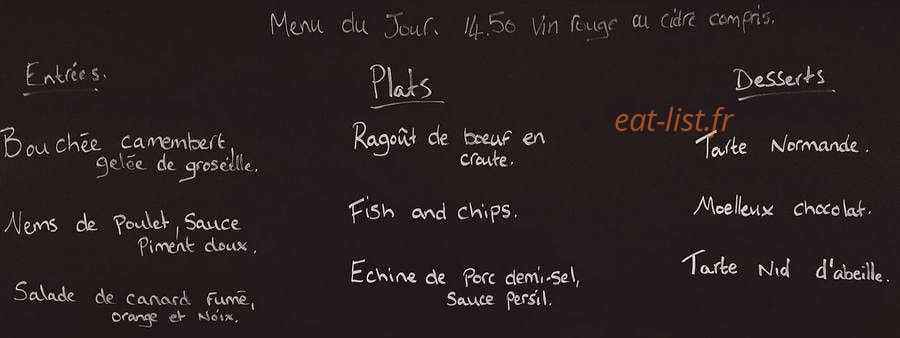 Menu du Jour. 14.50 Vin rouge ou cidre compris.
Entrées.
Bouchée camembert,
gelée de groseille.
Nems de Poulet, Sauce
Piment doux.
Salade de canard fumé,
orange et Noix.
Plats
Ragoût de boeuf en
croute.
Fish and chips.
Echine de Porc demi-sel,
Sauce Persil.
Desserts
eat-list.fr
Tarte Normande.
Moelleux chocolat.
Tarte Nid d'abeille.